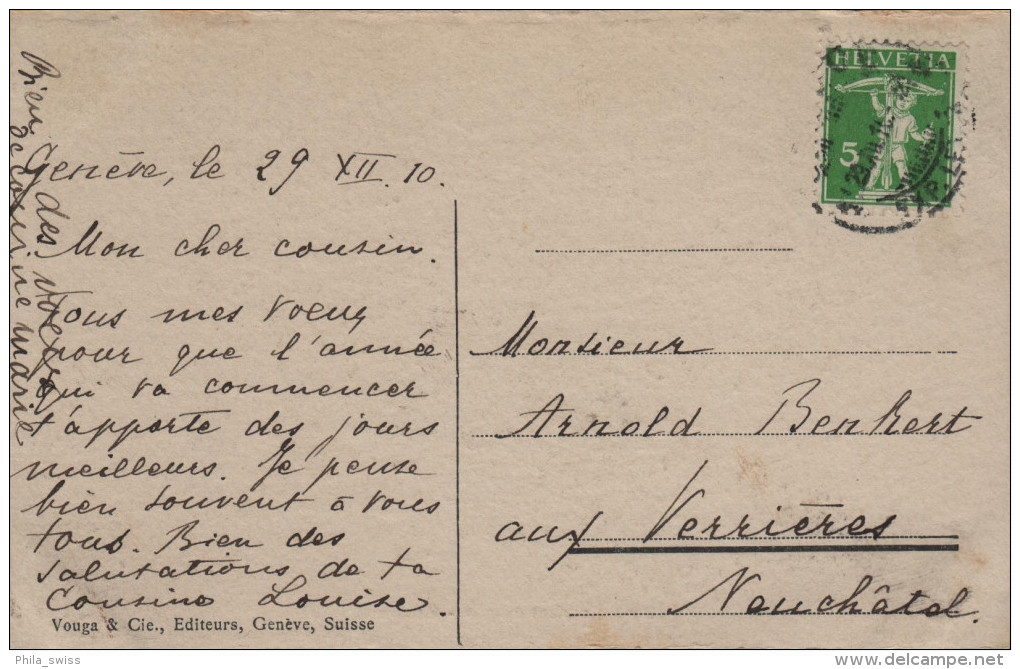 Genève, le 29 XII. 10.
Mon cher cousin.
Tous mes voeux
pour que l'année
qui va commencer
t'apporte des jours
meilleurs. Je pense
bien souvent à vous
tous. Bien des
salutations de ta
cousine Louise.
Bien des voeux
de cousine Marie
Vouga & Cie., Editeurs, Genève, Suisse
HELVETIA
5
EXP. LE
Monsieur
Arnold Benkert
aux Verrières
Neuchâtel.
Phila_swiss